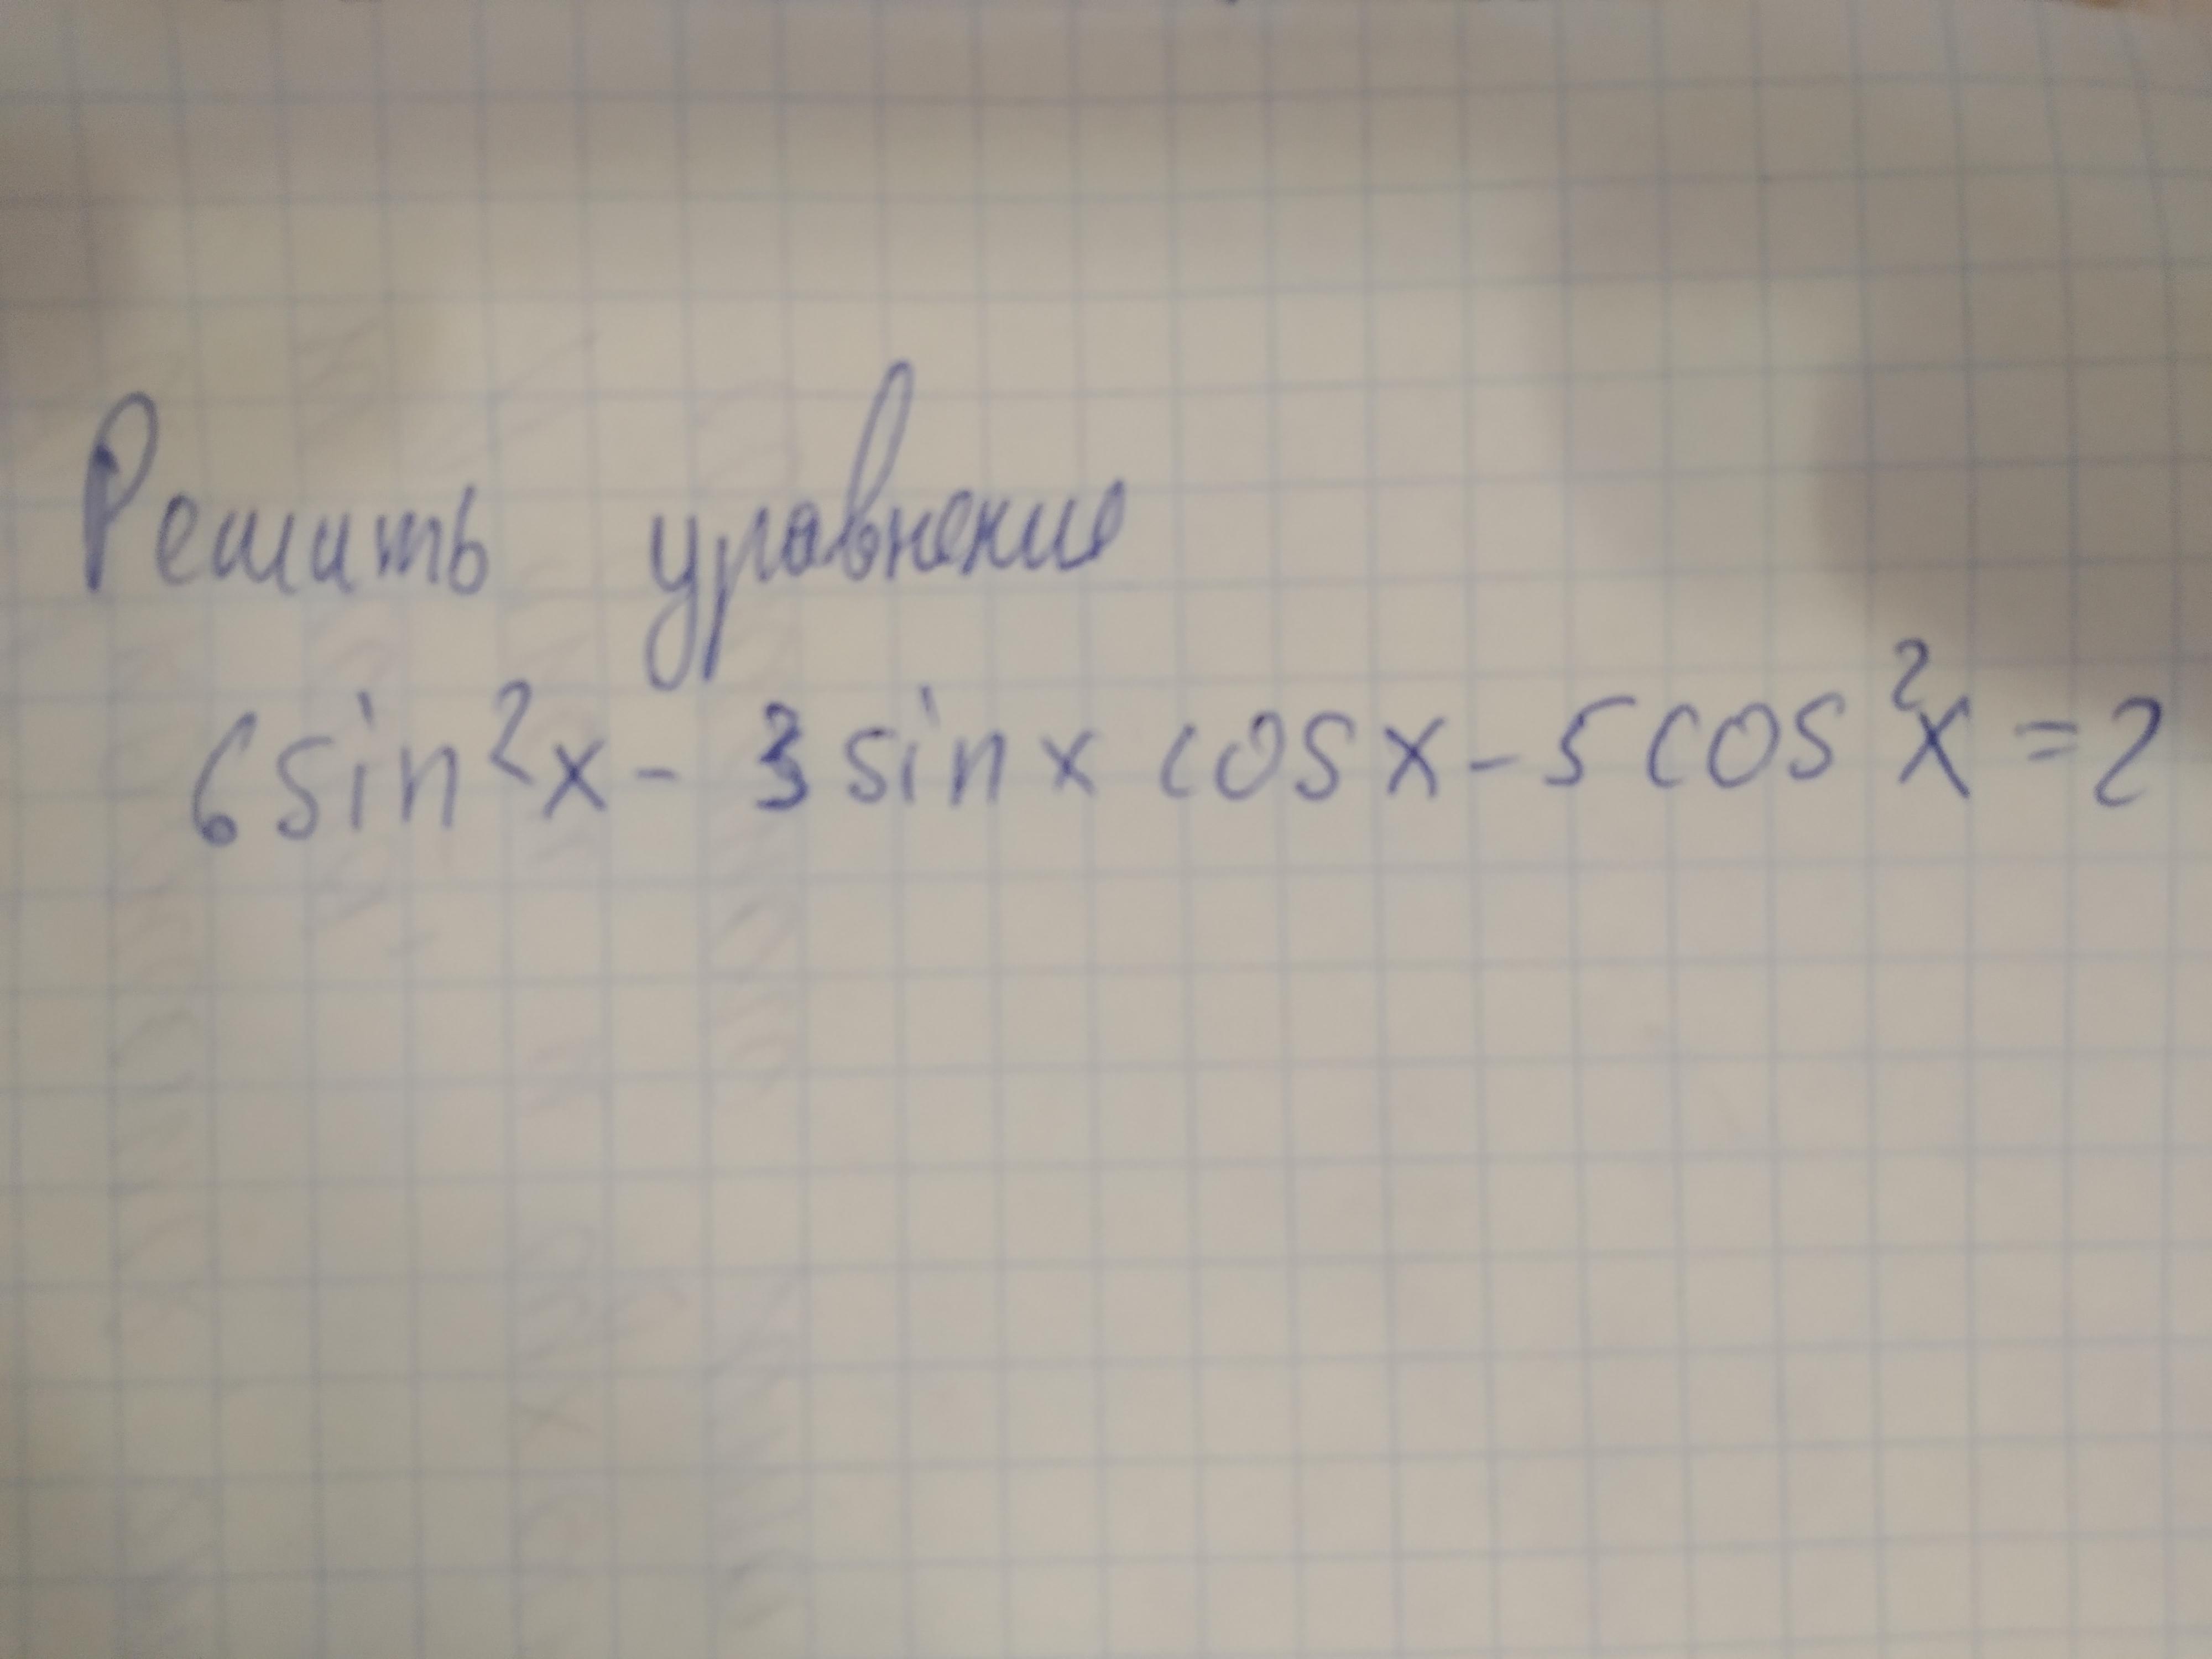 Решить уравнение
6sin²x - 3 sin x cos x - 5 cos²x = 2